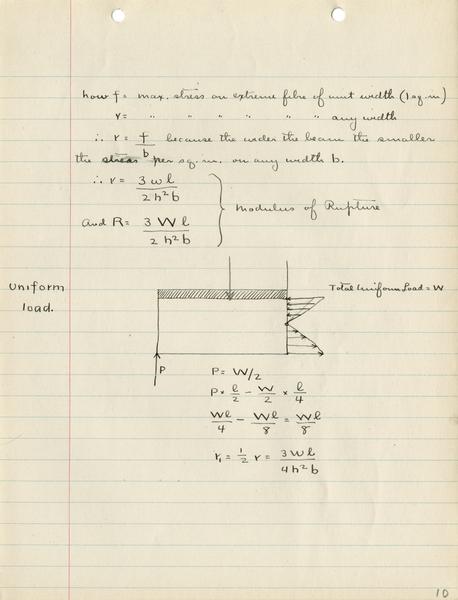 now f = max. stress on extreme fibre of unit width (1 sq. in)
r = " " " " " " " any width
∴ r = f/b because the wider the beam the smaller
the stress per sq. in. on any width b.
∴ r = 3wl/2h²b
and R = 3Wl/2h²b } Modulus of Rupture
Uniform
load.
Total Uniform Load = W
P
P = W/2
P × l/2 − W/2 × l/4
Wl/4 − Wl/8 = Wl/8
r₁ = ½ r = 3Wl/4h²b
10